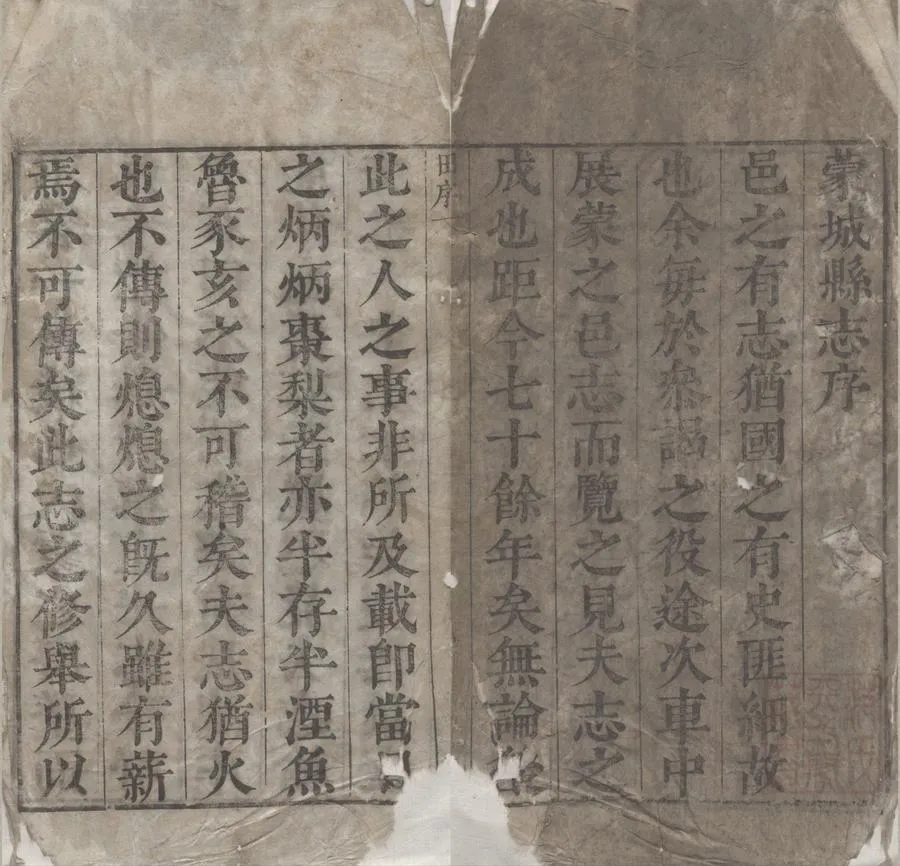 蒙城縣志序
邑之有志猶國之有史匪細故
也余每於叅謁之役途次車中
展蒙之邑志而覽之見夫志之
成也距今七十餘年矣無論
田序 一
此之人之事非所及載卽當
之炳炳棗梨者亦半存半湮魚
魯豕亥之不可稽矣夫志猶火
也不傳則熄熄之旣久雖有薪
焉不可傳矣此志之修舉所以